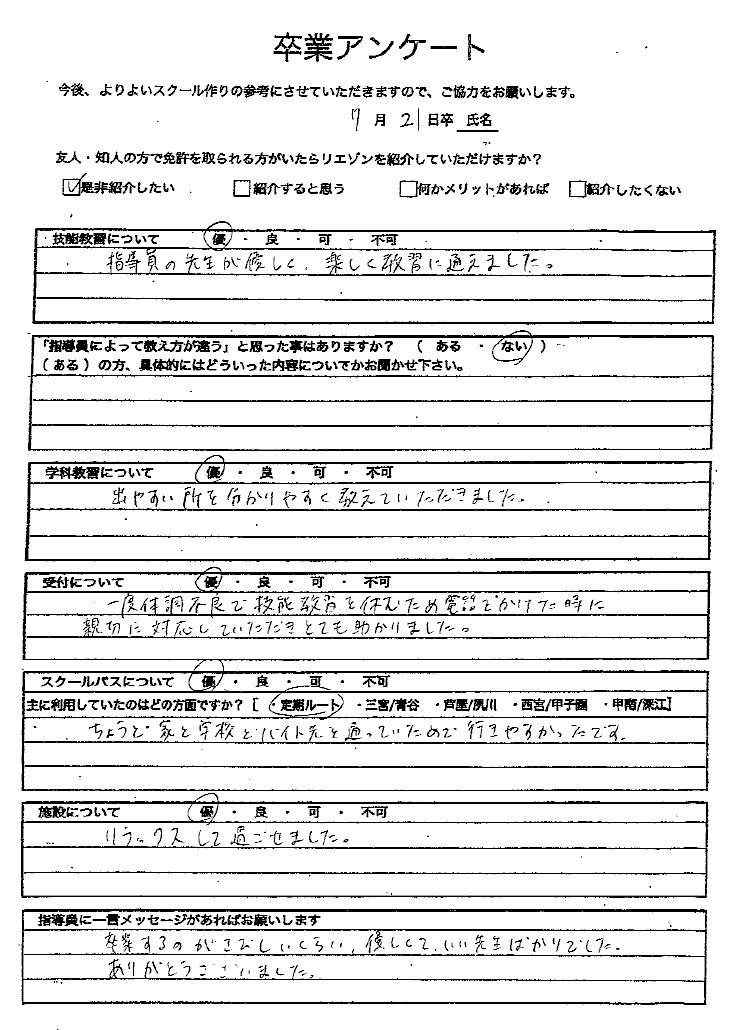 卒業アンケート
今後、よりよいスクール作りの参考にさせていただきますので、ご協力をお願いします。
7月21日卒 氏名
友人・知人の方で免許を取られる方がいたらリエゾンを紹介していただけますか?
☑是非紹介したい □紹介すると思う □何かメリットがあれば □紹介したくない
技能教習について 優 ・ 良 ・ 可 ・ 不可
指導員の先生が優しく、楽しく教習に通えました。
「指導員によって教え方が違う」と思った事はありますか? ( ある ・ ない )
( ある ) の方、具体的にはどういった内容についてかお聞かせ下さい。
学科教習について 優 ・ 良 ・ 可 ・ 不可
出やすい所を分かりやすく教えていただきました。
受付について 優 ・ 良 ・ 可 ・ 不可
一度体調不良で技能教習を休むため電話をかけた時に
親切に対応していただきとても助かりました。
スクールバスについて 優 ・ 良 ・ 可 ・ 不可
主に利用していたのはどの方面ですか? [ ・定期ルート ・三宮/青谷 ・芦屋/夙川 ・西宮/甲子園 ・甲南/深江]
ちょうど家と学校とバイト先を通っていたので行きやすかったです。
施設について 優 ・ 良 ・ 可 ・ 不可
リラックスして過ごせました。
指導員に一言メッセージがあればお願いします
卒業するのがさびしいくらい、優しくて、いい先生ばかりでした。
ありがとうございました。